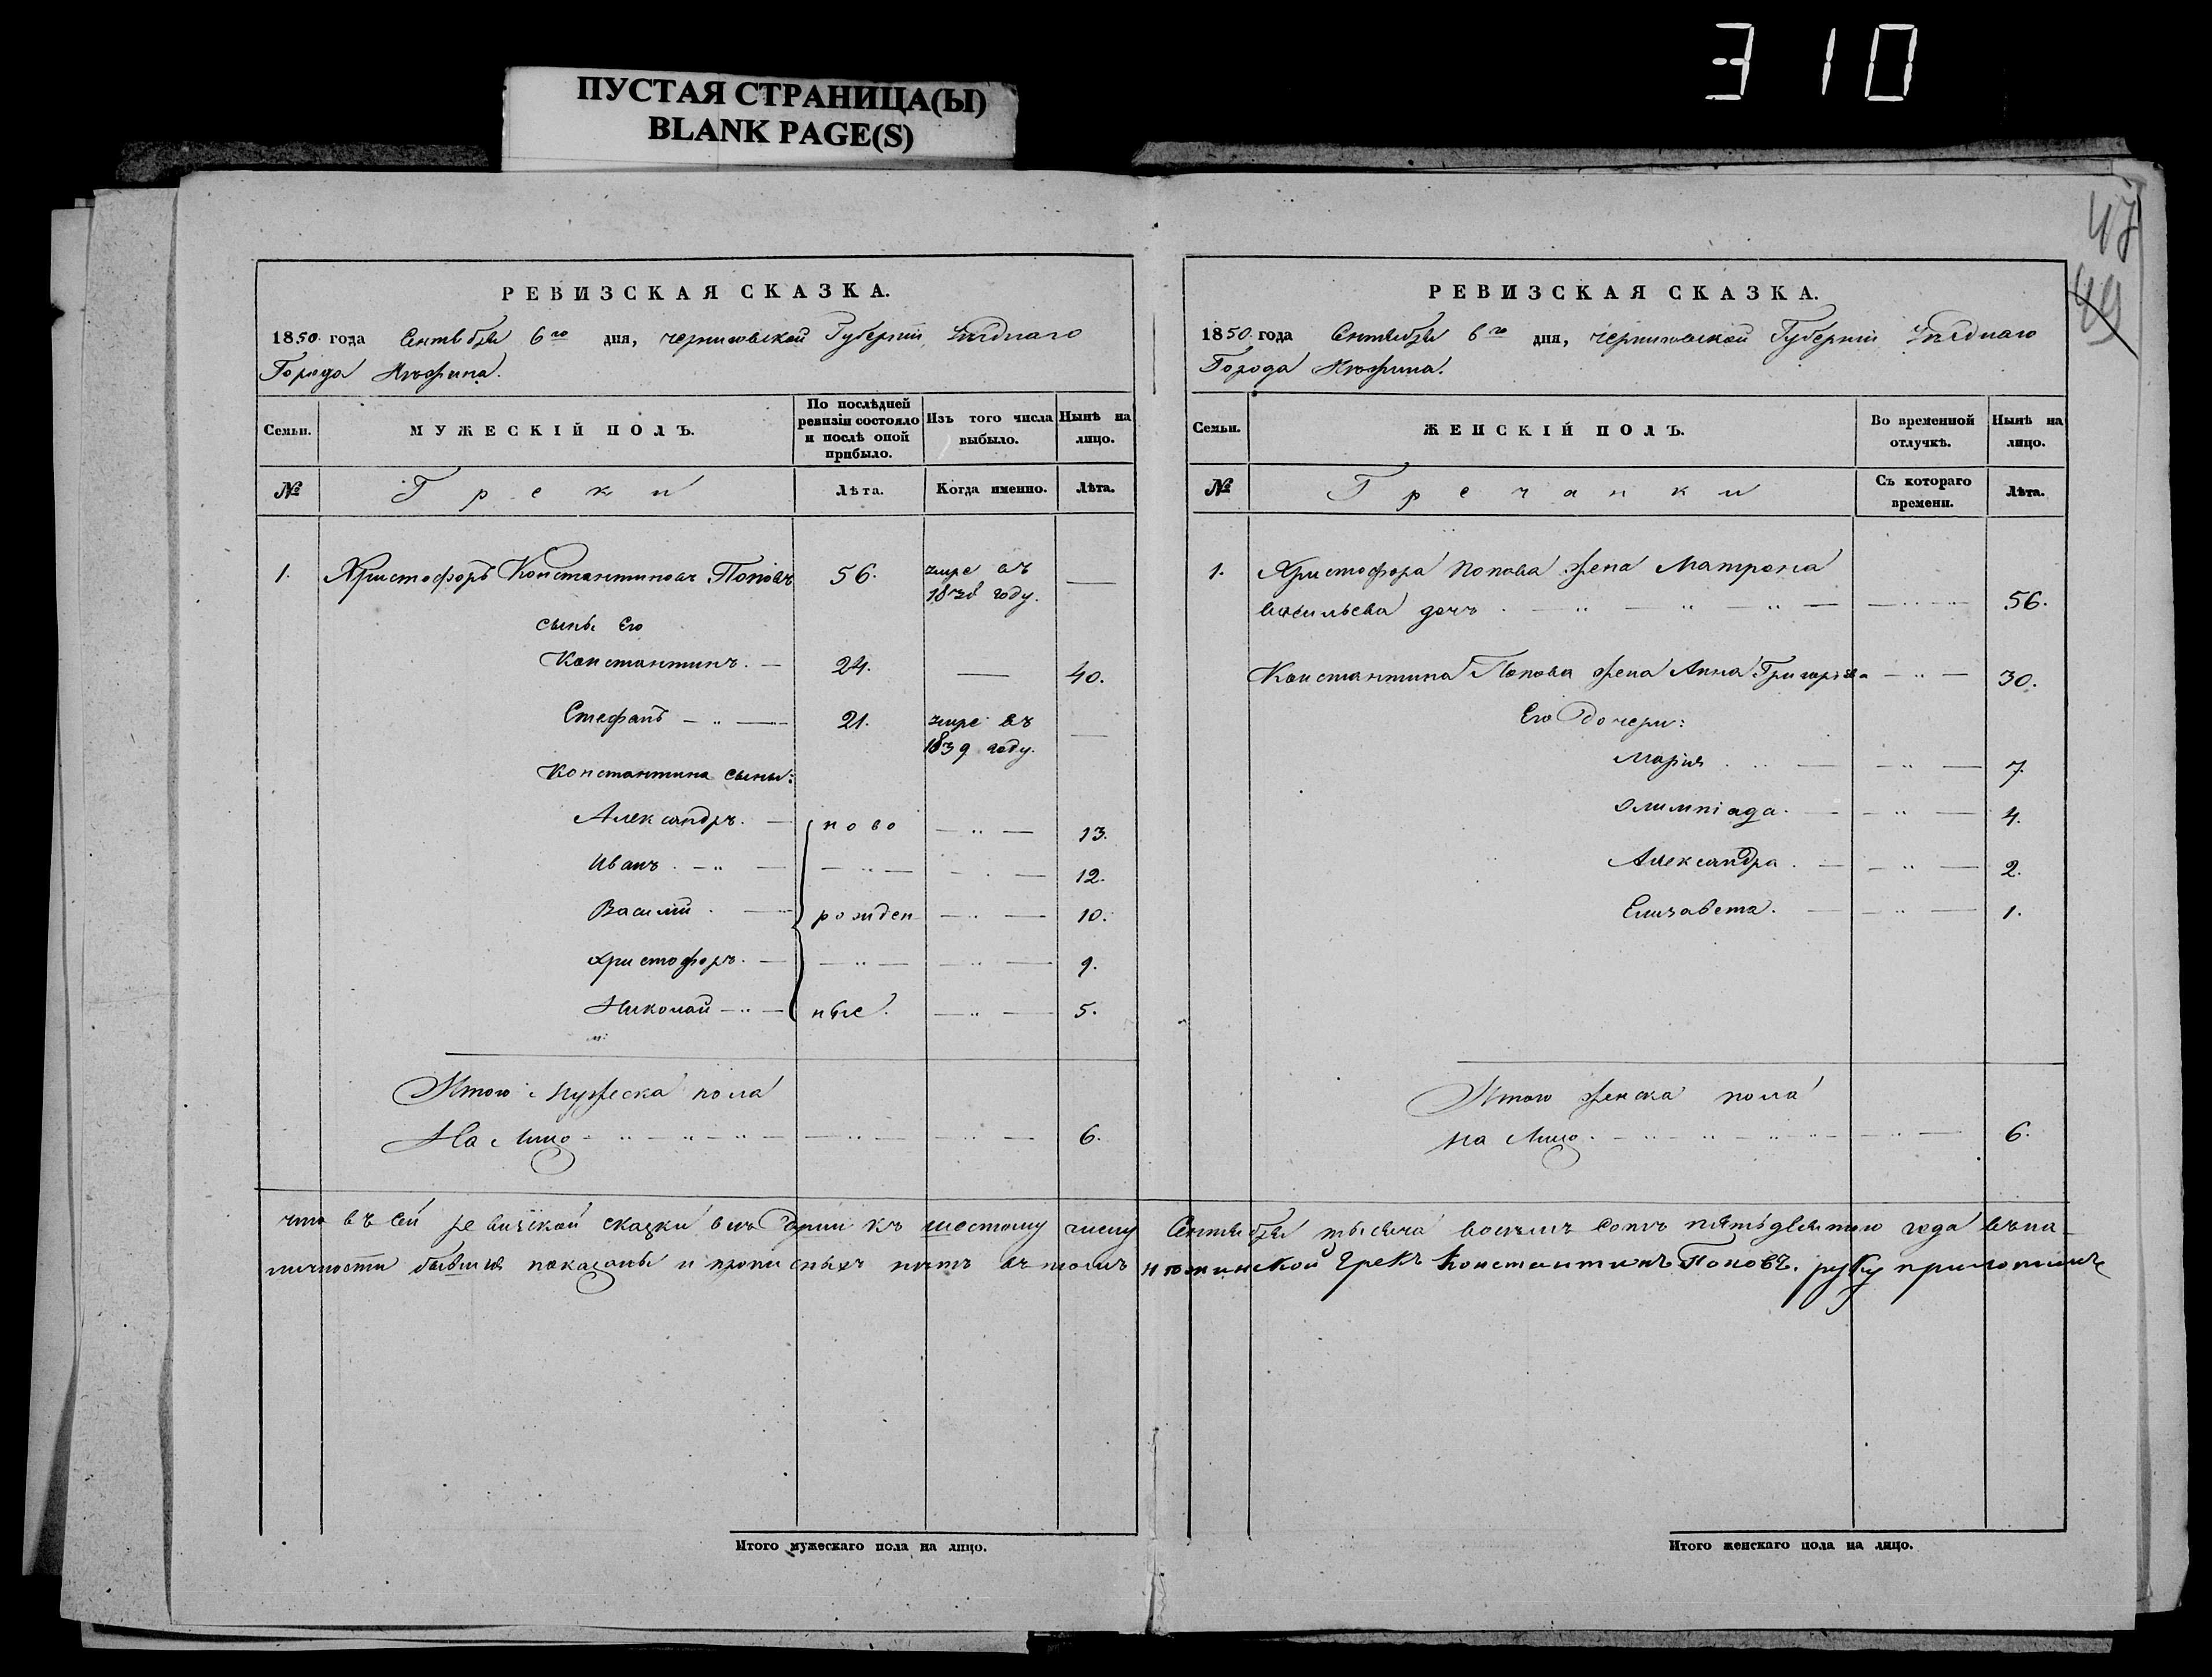 310
ПУСТАЯ СТРАНИЦА(Ы)
BLANK PAGE(S)
47
49
РЕВИЗСКАЯ СКАЗКА.
1850 года Сентября 6го дня, Черниговской Губернiи Уѣзднаго
Города Нѣжина.
Семьи.
МУЖЕСКIЙ ПОЛЪ.
По послѣдней ревизiи состояло и послѣ оной прибыло.
Изъ того числа выбыло.
Нынѣ на лицо.
№
Греки
Лѣта.
Когда именно.
Лѣта.
1. Христофоръ Константиновъ Поповъ 56. умре въ —
году.
сыны Его
Константинъ. — 24. — 40.
Стефанъ — „ — 21. умре въ —
1839 году.
Константина сыны:
Александръ. — ново — „ — 13.
Иванъ. — „ — — „ — — „ — 12.
Василiй. — рожден — „ — 10.
Христофоръ. — — „ — — „ — 9.
Николай — „ — ные. — „ — 5.
Итого Мужеска пола
На Лицо — „ — „ — „ — — „ — — „ — 6.
что въ сей ревизской сказки къ шестому числу
личности бывшiя показаны и прописныхъ нѣтъ въ томъ
Итого мужескаго пола на лицо.
РЕВИЗСКАЯ СКАЗКА.
1850 года Сентября 6го дня, Черниговской Губернiи Уѣзднаго
Города Нѣжина.
Семьи.
ЖЕНСКIЙ ПОЛЪ.
Во временной отлучкѣ.
Нынѣ на лицо.
№
Гречанки
Съ котораго времени.
Лѣта.
1. Христофора Попова жена Матрона
васильева дочь. — „ — „ — „ — — „ — 56.
Константина Попова жена Анна Григорiева — „ — 30.
Его дочери:
Марiя . „ — — „ — 7.
Олимпiада. — — „ — 4.
Александра. — — „ — 2.
Елизавета. — — „ — 1.
Итого женска пола
на Лицо. — „ — „ — „ — — „ — 6.
Сентября тысяча восемь сотъ пятьдесятого года въ на-
нѣжинской Грекъ Константинъ Поповъ. руку приложилъ
Итого женскаго пола на лицо.